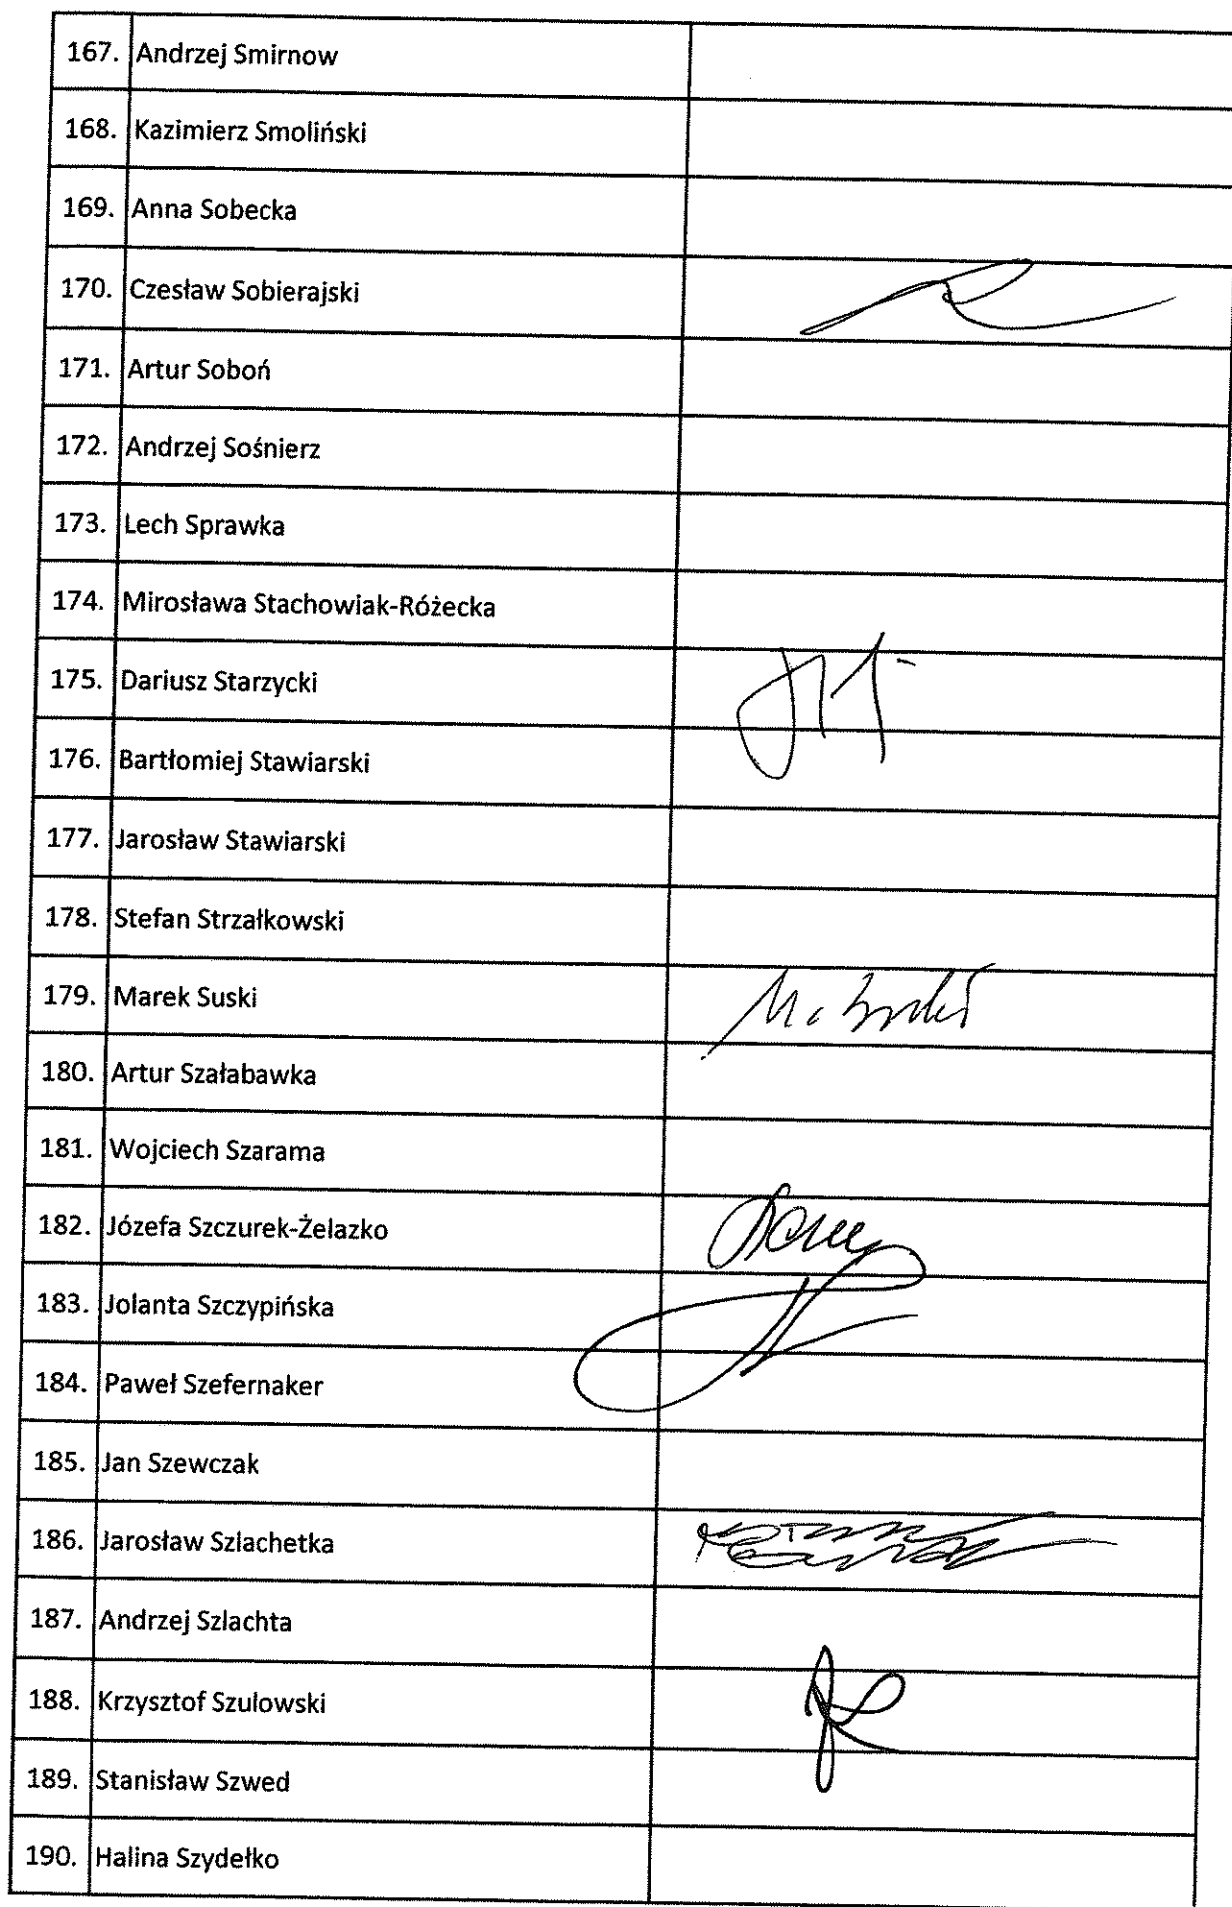 167. Andrzej Smirnow
168. Kazimierz Smoliński
169. Anna Sobecka
170. Czesław Sobierajski
171. Artur Soboń
172. Andrzej Sośnierz
173. Lech Sprawka
174. Mirosława Stachowiak-Różecka
175. Dariusz Starzycki
176. Bartłomiej Stawiarski
177. Jarosław Stawiarski
178. Stefan Strzałkowski
179. Marek Suski
180. Artur Szałabawka
181. Wojciech Szarama
182. Józefa Szczurek-Żelazko
183. Jolanta Szczypińska
184. Paweł Szefernaker
185. Jan Szewczak
186. Jarosław Szlachetka
187. Andrzej Szlachta
188. Krzysztof Szulowski
189. Stanisław Szwed
190. Halina Szydełko